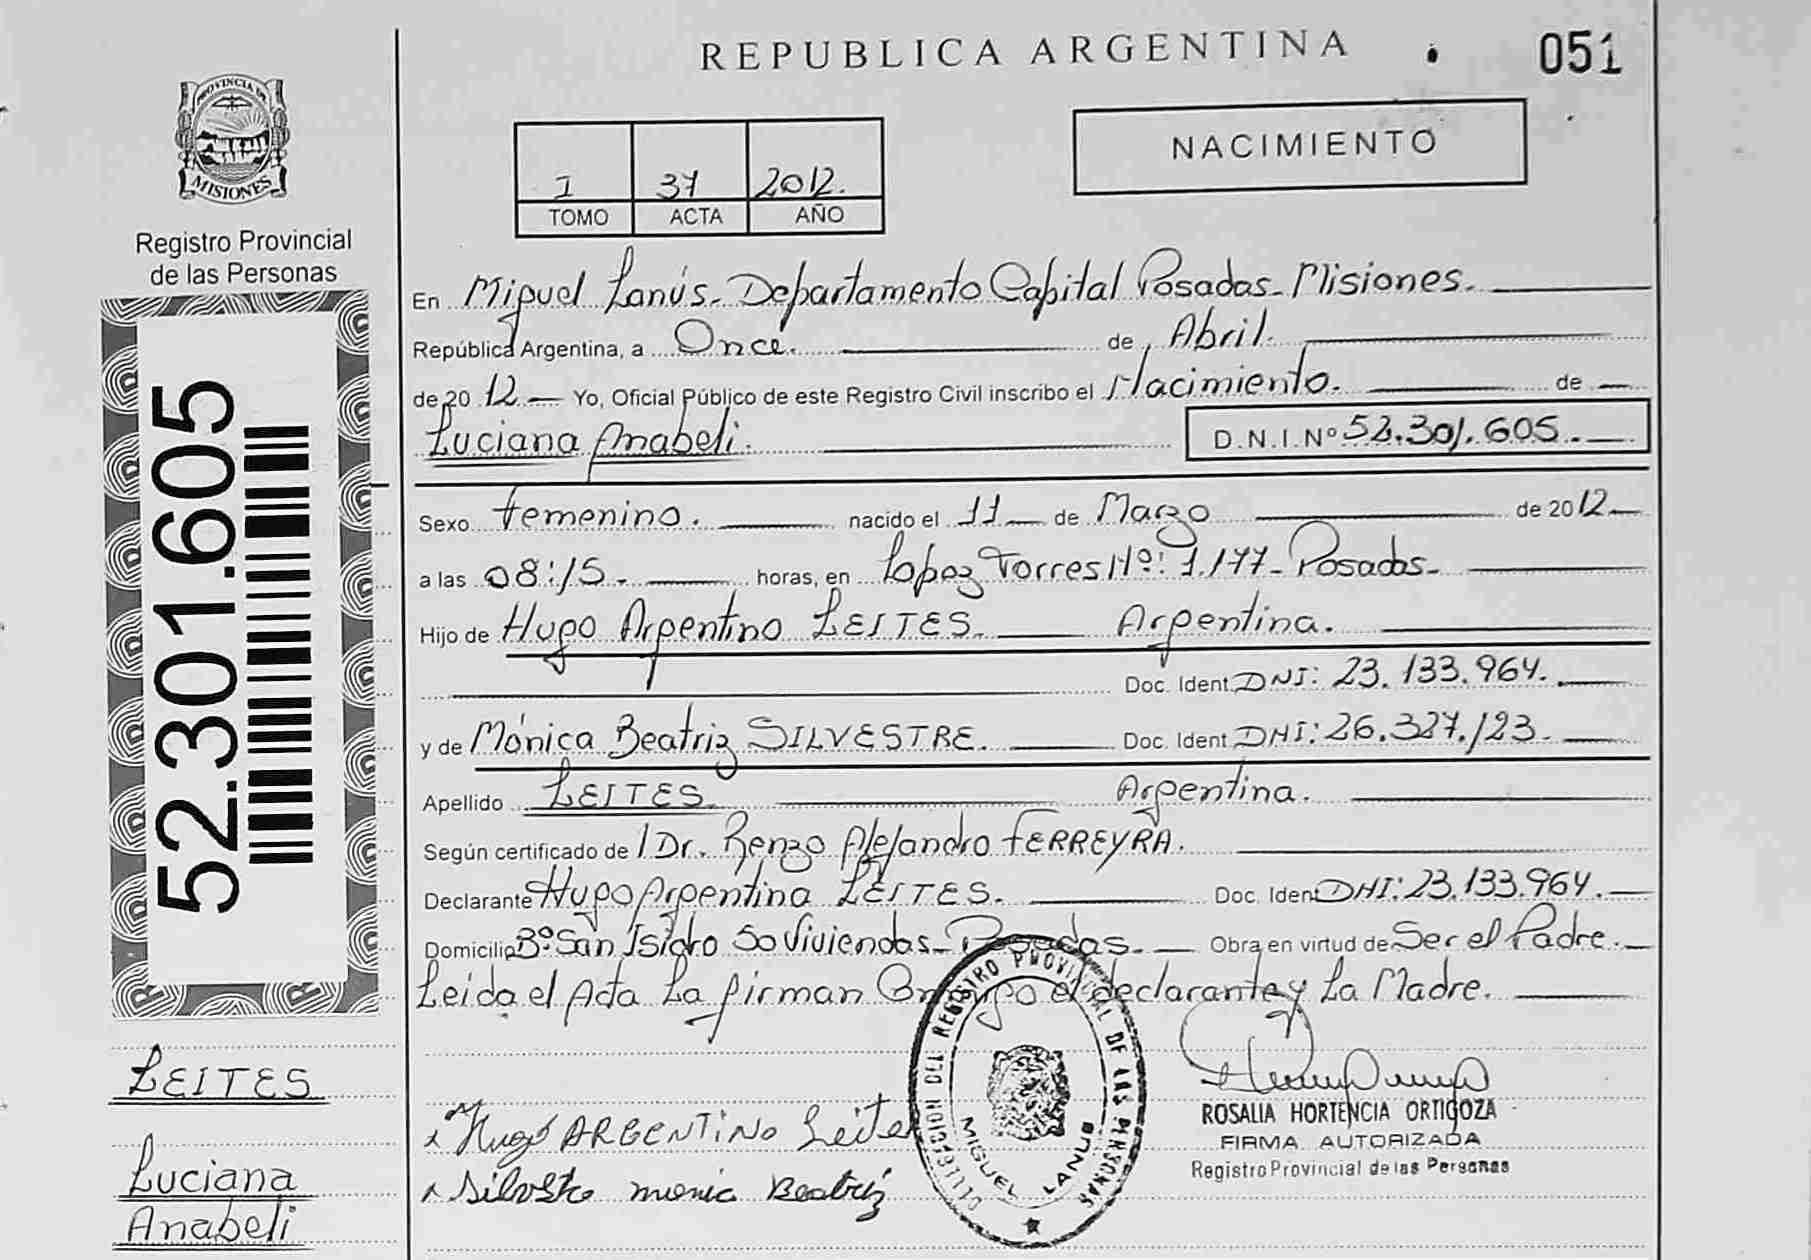 REPUBLICA ARGENTINA
051
PROVINCIA DE
MISIONES
Registro Provincial
de las Personas
I 37 2012.
TOMO ACTA AÑO
NACIMIENTO
En Miguel Lanús- Departamento Capital Posadas- Misiones.
República Argentina, a Once. de Abril.
de 2012 Yo, Oficial Público de este Registro Civil inscribo el Nacimiento. de
Luciana Anabeli. D.N.I.Nº 52.301.605.
Sexo Femenino. nacido el 11 de Marzo de 2012
a las 08:15. horas, en Lopez Torres Nº: 1.177- Posadas-
Hijo de Hugo Argentino LEITES. Argentina.
Doc. Ident. DNI: 23.133.964.
y de Mónica Beatriz SILVESTRE. Doc. Ident. DNI: 26.327.123.
Apellido LEITES Argentina.
Según certificado de Dr. Renzo Alejandro FERREYRA.
Declarante Hugo Argentina LEITES. Doc. Ident DNI: 23.133.964.
Domicilio Bº San Isidro 50 Viviendas- Posadas. Obra en virtud de Ser el Padre.
Leida el Acta La firman Conmigo el declarante y La Madre.
52.301.605
LEITES
Luciana
Anabeli
Hugo ARGENTINO Leites
Silvestre monic Beatriz
DELEGACION DEL REGISTRO PROVINCIAL DE LAS PERSONAS
MIGUEL LANUS
ROSALIA HORTENCIA ORTIGOZA
FIRMA AUTORIZADA
Registro Provincial de las Personas